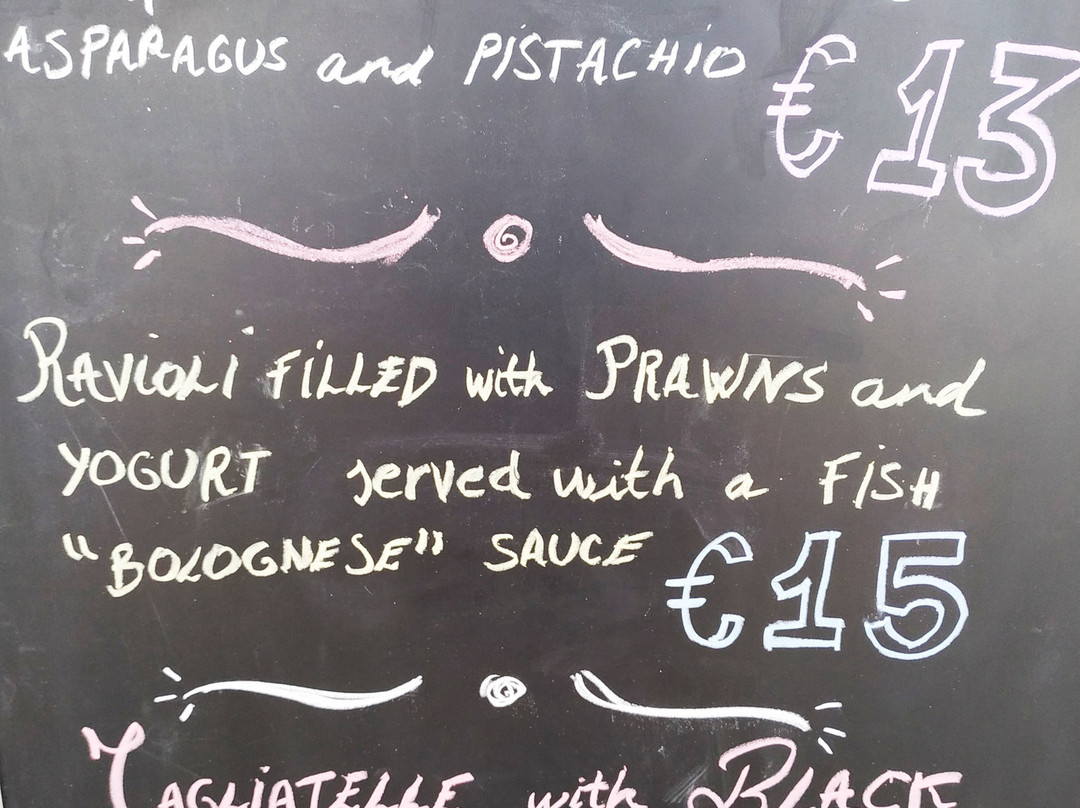 ASPARAGUS and PISTACHIO €13
RAVIOLI FILLED with PRAWNS and
YOGURT served with a FISH
"BOLOGNESE" SAUCE €15
TAGLIATELLE with BLACK